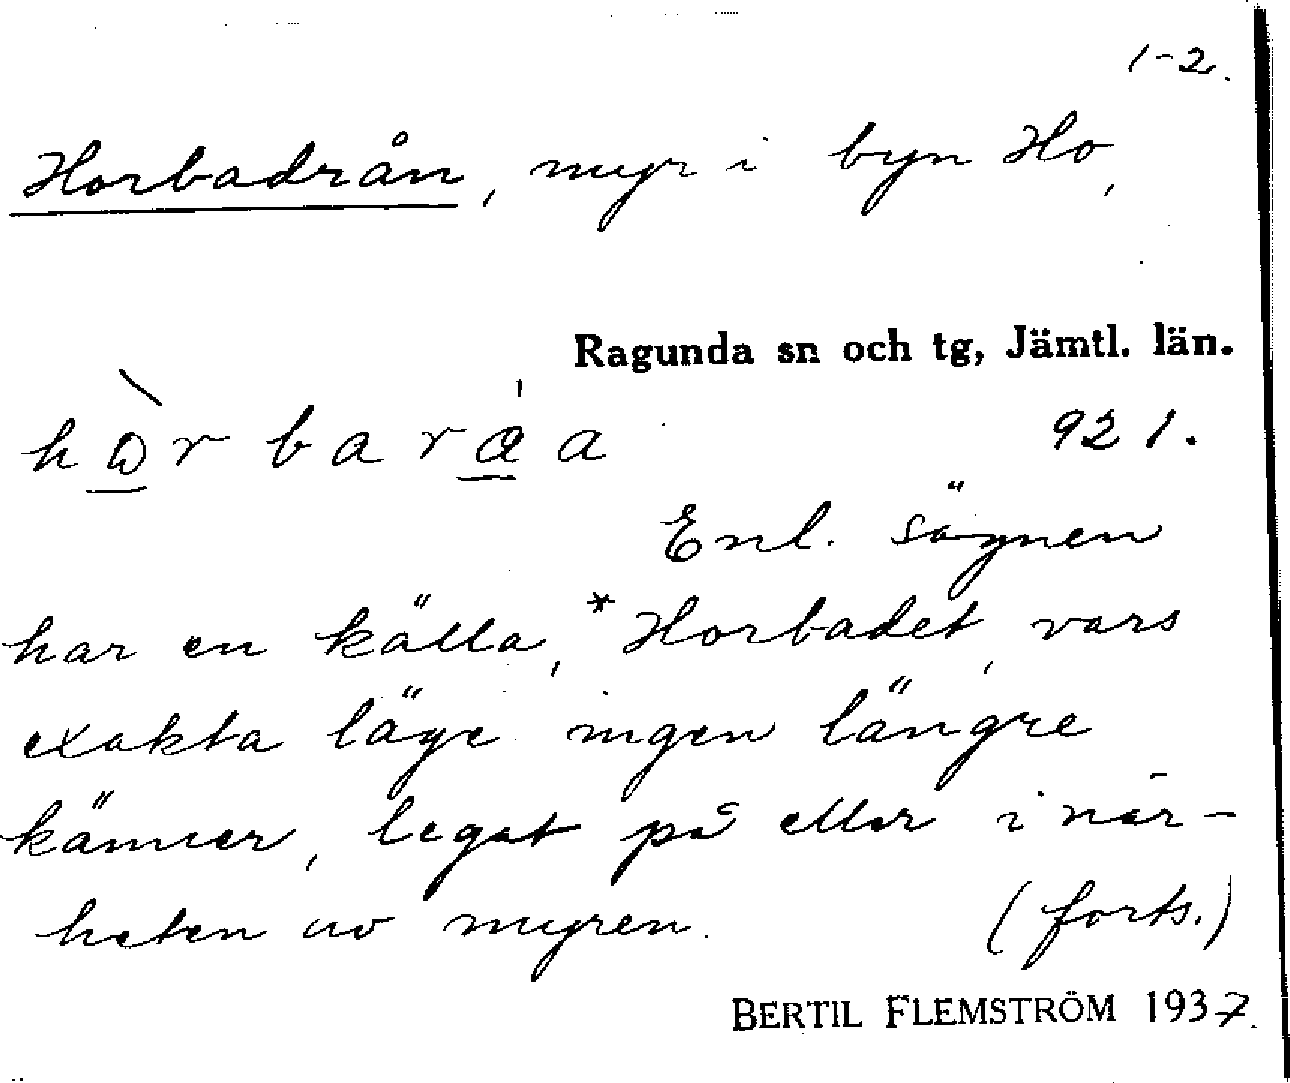 1-2.
Horbadrån, myr i byn Ho,
Ragunda sn och tg, Jämtl. län.
921.
Enl. sägnen
har en källa, *Horbadet, vars
exakta läge ingen längre
känner, legat på eller i när-
heten av myren. (forts.)
BERTIL FLEMSTRÖM 1937.